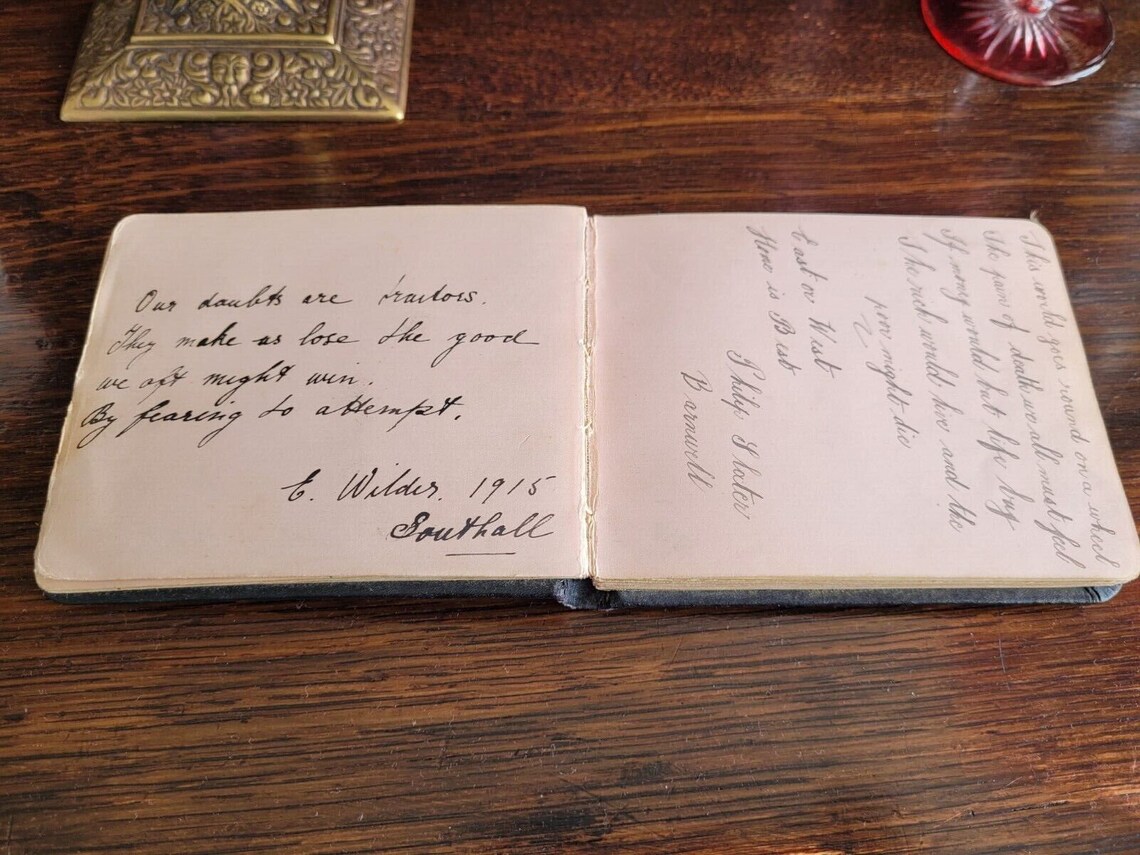 Our doubts are traitors.
They make us lose the good
we oft might win.
By fearing to attempt.
E. Wilder. 1915
Southall
This world goes round on a wheel
The pain of death we all must feel
If money would but life buy
The rich would live and the
poor might die
East or West
Home is Best
Philip Slater
Barnwell